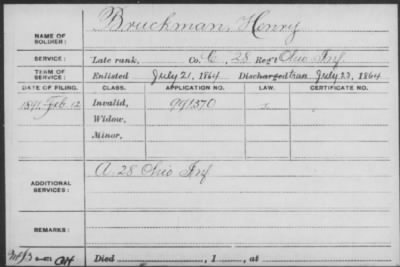 NAME OF SOLDIER: Bruckman, Henry
SERVICE: Late rank, Co. C, 28 Reg't Ohio Inf.
TERM OF SERVICE: Enlisted July 21, 1864 Discharged tran. July 23, 1864
DATE OF FILING. CLASS. APPLICATION NO. LAW. CERTIFICATE NO.
1891, Feb. 12 Invalid, 991370
Widow,
Minor,
ADDITIONAL SERVICES: A. 28 Ohio Inf
REMARKS:
Died , 1 , at